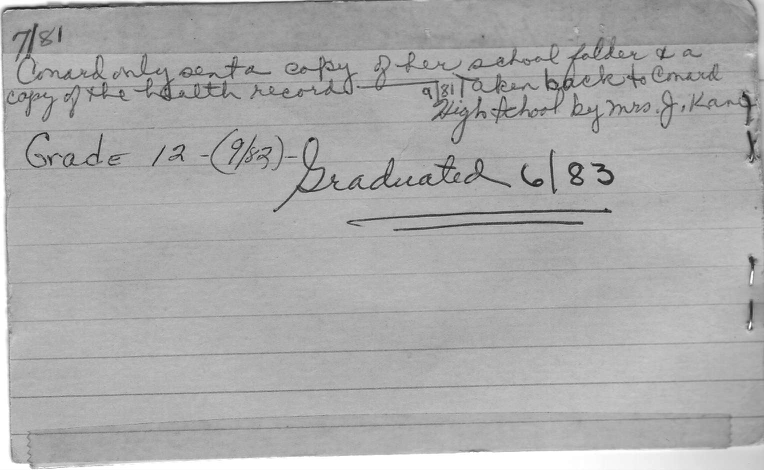 7/81
Conard only sent a copy of her school folder & a
copy of the health record. — 9/81 Taken back to Conard
High School by Mrs. J. Kane
Grade 12 - (9/82) - Graduated 6/83